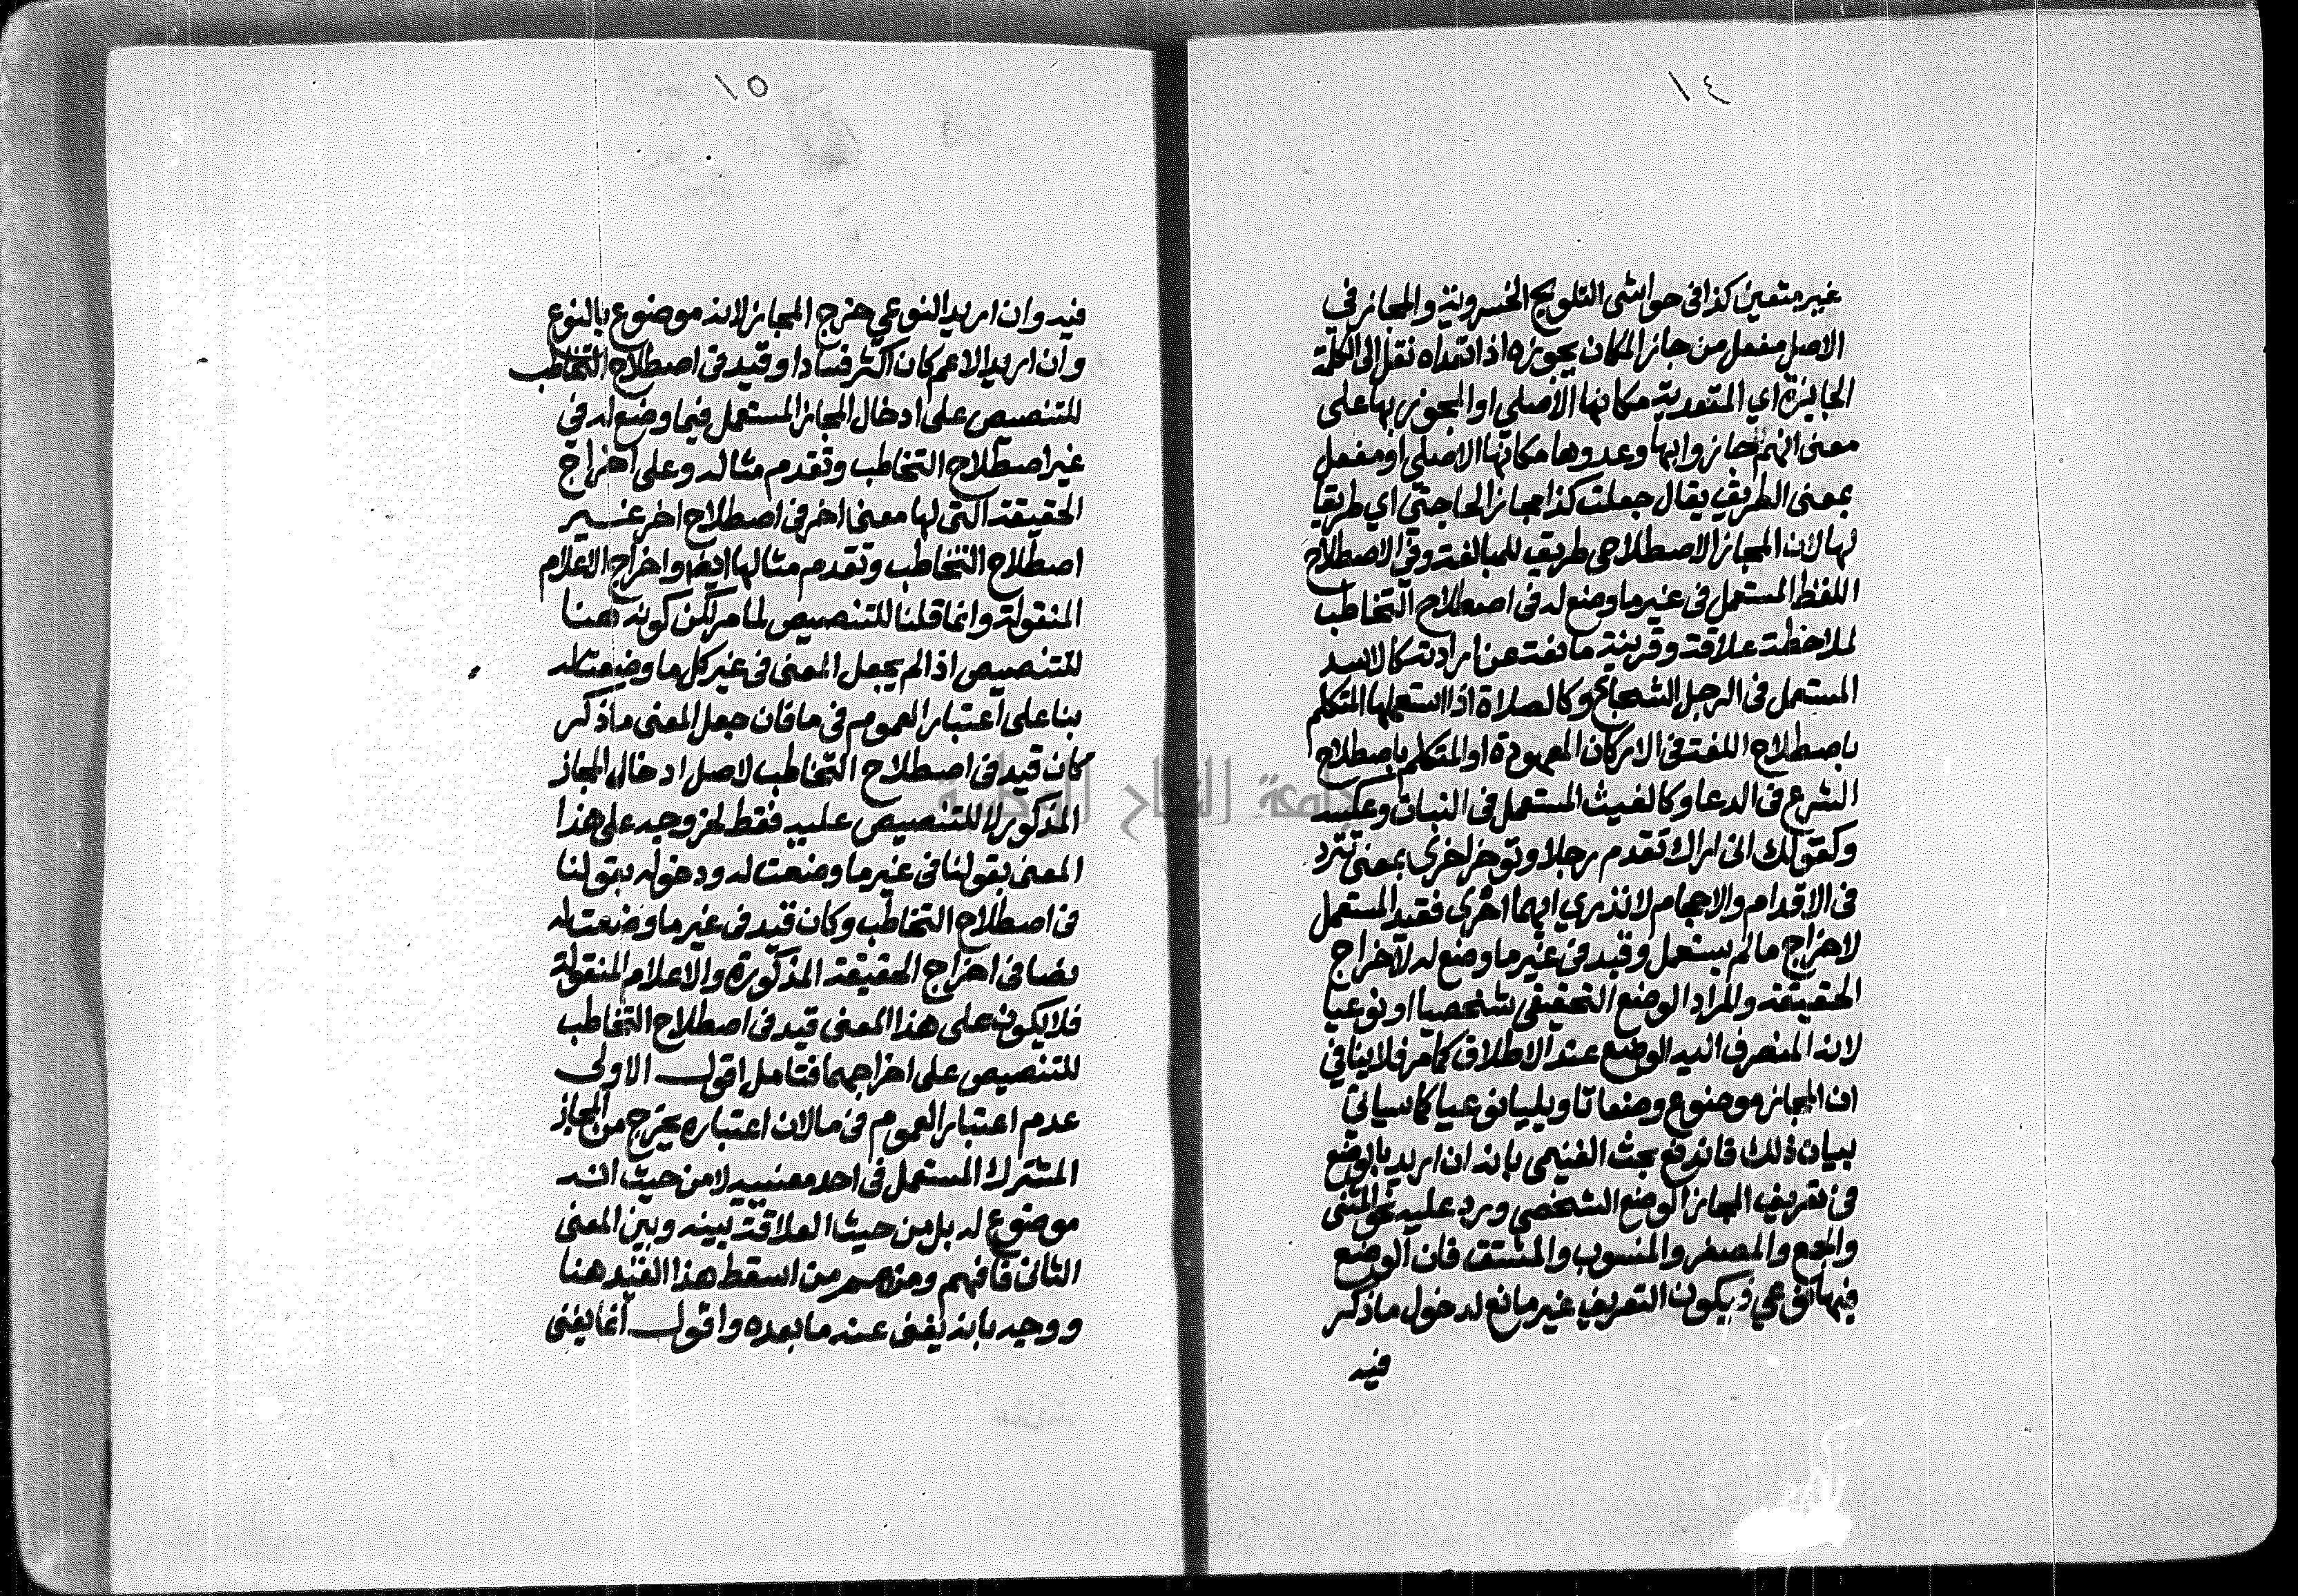 ١٤
غير متعين كذا فى حواشى التلويح الخسروية والمجاز في
الاصل مفعل من جاز المكان يجوزه اذا تعداه نقل الى الكلمة
الجايزة اي المتعدية مكانها الاصلي او المجوز بها على
معنى انهم جازوا بها وعدوها مكانها الاصلي او مفعل
بمعنى الطريق يقال جعلت كذا مجازا لحاجتى اي طريقا
لها لان المجاز الاصطلاحى طريق للمبالغة وفى الاصطلاح
اللفظ المستعمل فى غير ما وضع له فى اصطلاح التخاطب
لملاحظة علاقة وقرينة مانعة عن ارادته كالاسد
المستعمل فى الرجل الشجاع وكالصلاة اذا استعملها المتكلم
باصطلاح اللغة فى الاركان المعهودة او المتكلم باصطلاح
الشرع فى الدعا وكالغيث المستعمل فى النبات وعكسه
وكقولك انى اراك تقدم رجلا وتوخر اخرى بمعنى تتردد
فى الاقدام والاحجام لا تدرى ايهما احرى فقيد المستعمل
لاخراج ما لم يستعمل وقيد فى غير ما وضع له لاخراج
الحقيقة والمراد الوضع التحقيقى شخصيا او نوعيا
لانه المنصرف اليه الوضع عند الاطلاق كما مر فلا ينافي
ان المجاز موضوع وضعا تاويليا نوعيا كما سياتى
بيان ذلك فاندفع بحث الغنيمى بانه ان اريد بالوضع
فى تعريف المجاز الوضع الشخصي ورد عليه نحو المثنى
والجمع والمصغر والمنسوب والمشتق فان الوضع
فيها نوعي فيكون التعريف غير مانع لدخول ما ذكر
فيه
١٥
فيه وان اريد النوعي خرج المجاز لانه موضوع بالنوع
وان اريد الاعم كان اكثر فسادا وقيد فى اصطلاح التخاطب
للتنصيص على ادخال المجاز المستعمل فيما وضع له في
غير اصطلاح التخاطب وتقدم مثاله وعلى اخراج
الحقيقة التى لها معنى اخر فى اصطلاح اخر غير
اصطلاح التخاطب وتقدم مثالها ايضا واخراج الاعلام
المنقولة وانما قلنا للتنصيص لما مر لكن كونه هنا
للتنصيص اذا لم يجعل المعنى فى غير كل ما وضعت له
بنا على اعتبار العموم فى ما فان جعل المعنى ما ذكر
كان قيد فى اصطلاح التخاطب لاصل ادخال المجاز
المذكور لا للتنصيص عليه فقط لخروجه على هذا
المعنى بقولنا فى غير ما وضعت له ودخوله بقولنا
فى اصطلاح التخاطب وكان قيد فى غير ما وضعت له
نصا فى اخراج الحقيقة المذكورة والاعلام المنقولة
فلا يكون على هذا المعنى قيد فى اصطلاح التخاطب
للتنصيص على اخراجهما فتامل اقول الاولى
عدم اعتبار العموم فى ما لان اعتباره يخرج من المجاز
المشترك المستعمل فى احد معنييه لا من حيث انه
موضوع له بل من حيث العلاقة بينه وبين المعنى
الثانى فافهم ومنهم من اسقط هذا القيد هنا
ووجه بانه يغنى عنه ما بعده واقول انما يغنى
جامعة النجاح الوطنية